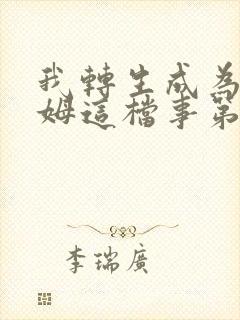 我轉生成為
姆這檔事第
李瑞廣